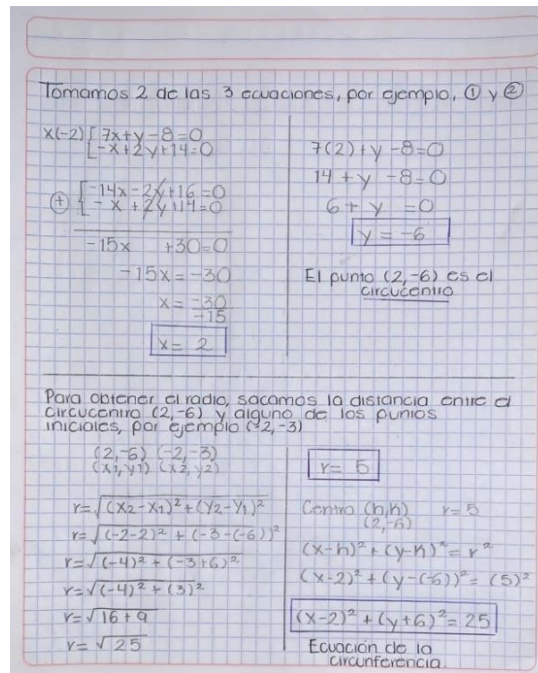 Tomamos 2 de las 3 ecuaciones, por ejemplo, ① y ②
x(-2) [ 7x+y-8=0
[ -x+2y+14=0
⊕ { -14x-2y+16=0
{ -x+2y+14=0
-15x +30=0
-15x=-30
x= -30
-15
x= 2
7(2)+y-8=0
14+y-8=0
6+y =0
y=-6
El punto (2,-6) es el
circucentro
Para obtener el radio, sacamos la distancia entre el
circucentro (2,-6) y alguno de los puntos
iniciales, por ejemplo (-2,-3)
(2,-6) (-2,-3)
(x1,y1) (x2,y2)
r=√(x2-x1)²+(y2-y1)²
r=√(-2-2)²+(-3-(-6))²
r=√(-4)²+(-3+6)²
r=√(-4)²+(3)²
r=√16+9
r=√25
r= 5
Centro (h,k) r=5
(2,-6)
(x-h)²+(y-k)²=r²
(x-2)²+(y-(-6))²=(5)²
(x-2)²+(y+6)²=25
Ecuación de la
circunferencia